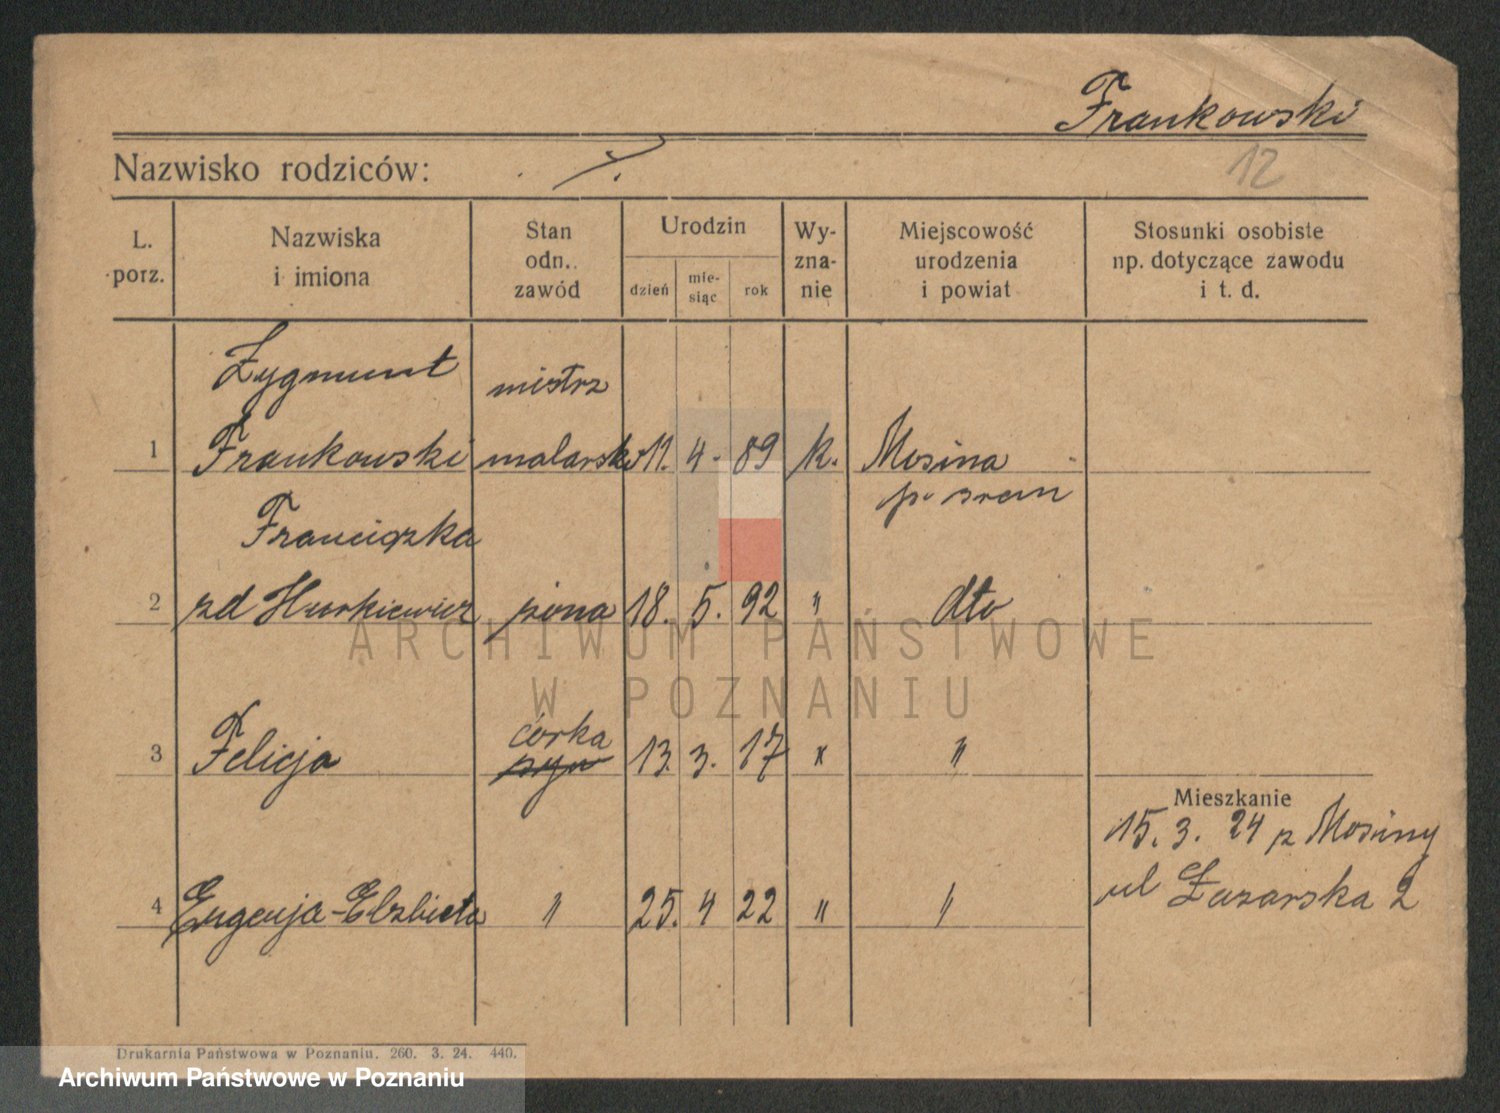 Frankowski
12
Nazwisko rodziców: ·/.
L. porz.
Nazwiska i imiona
Stan odn. zawód
Urodzin
dzień
mie-siąc
rok
Wy-zna-nie
Miejscowość urodzenia i powiat
Stosunki osobiste np. dotyczące zawodu i t. d.
Zygmunt mistrz
1 Frankowski malarski 11. 4. 89 k. Mosina
p. srem
Franciszka
2 zd żona 18. 5. 92 " dto
córka
3 Felicja 13. 3. 17 " "
Mieszkanie
15. 3. 24 z Mosiny
ul Łazarska 2
4 Eugenja-Elzbieta " 25. 4 22 " "
ARCHIWUM PAŃSTWOWE
W POZNANIU
Drukarnia Państwowa w Poznaniu. 260. 3. 24. 440.
Archiwum Państwowe w Poznaniu